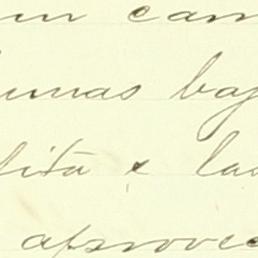 un cam
unas baj
ita e la
aprovec